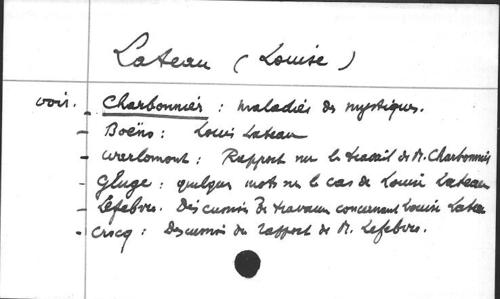 Lateau (Louise)
voir. - Charbonnier : maladies des mystiques.
- Boëns : Louise Lateau
- Warlomont : Rapport sur le travail de M. Charbonnier
- Gluge : quelques mots sur le cas de Louise Lateau
- Lefebvre. Discussion de travaux concernant Louise Lateau
- Crocq : Discussion du rapport de M. Lefebvre.